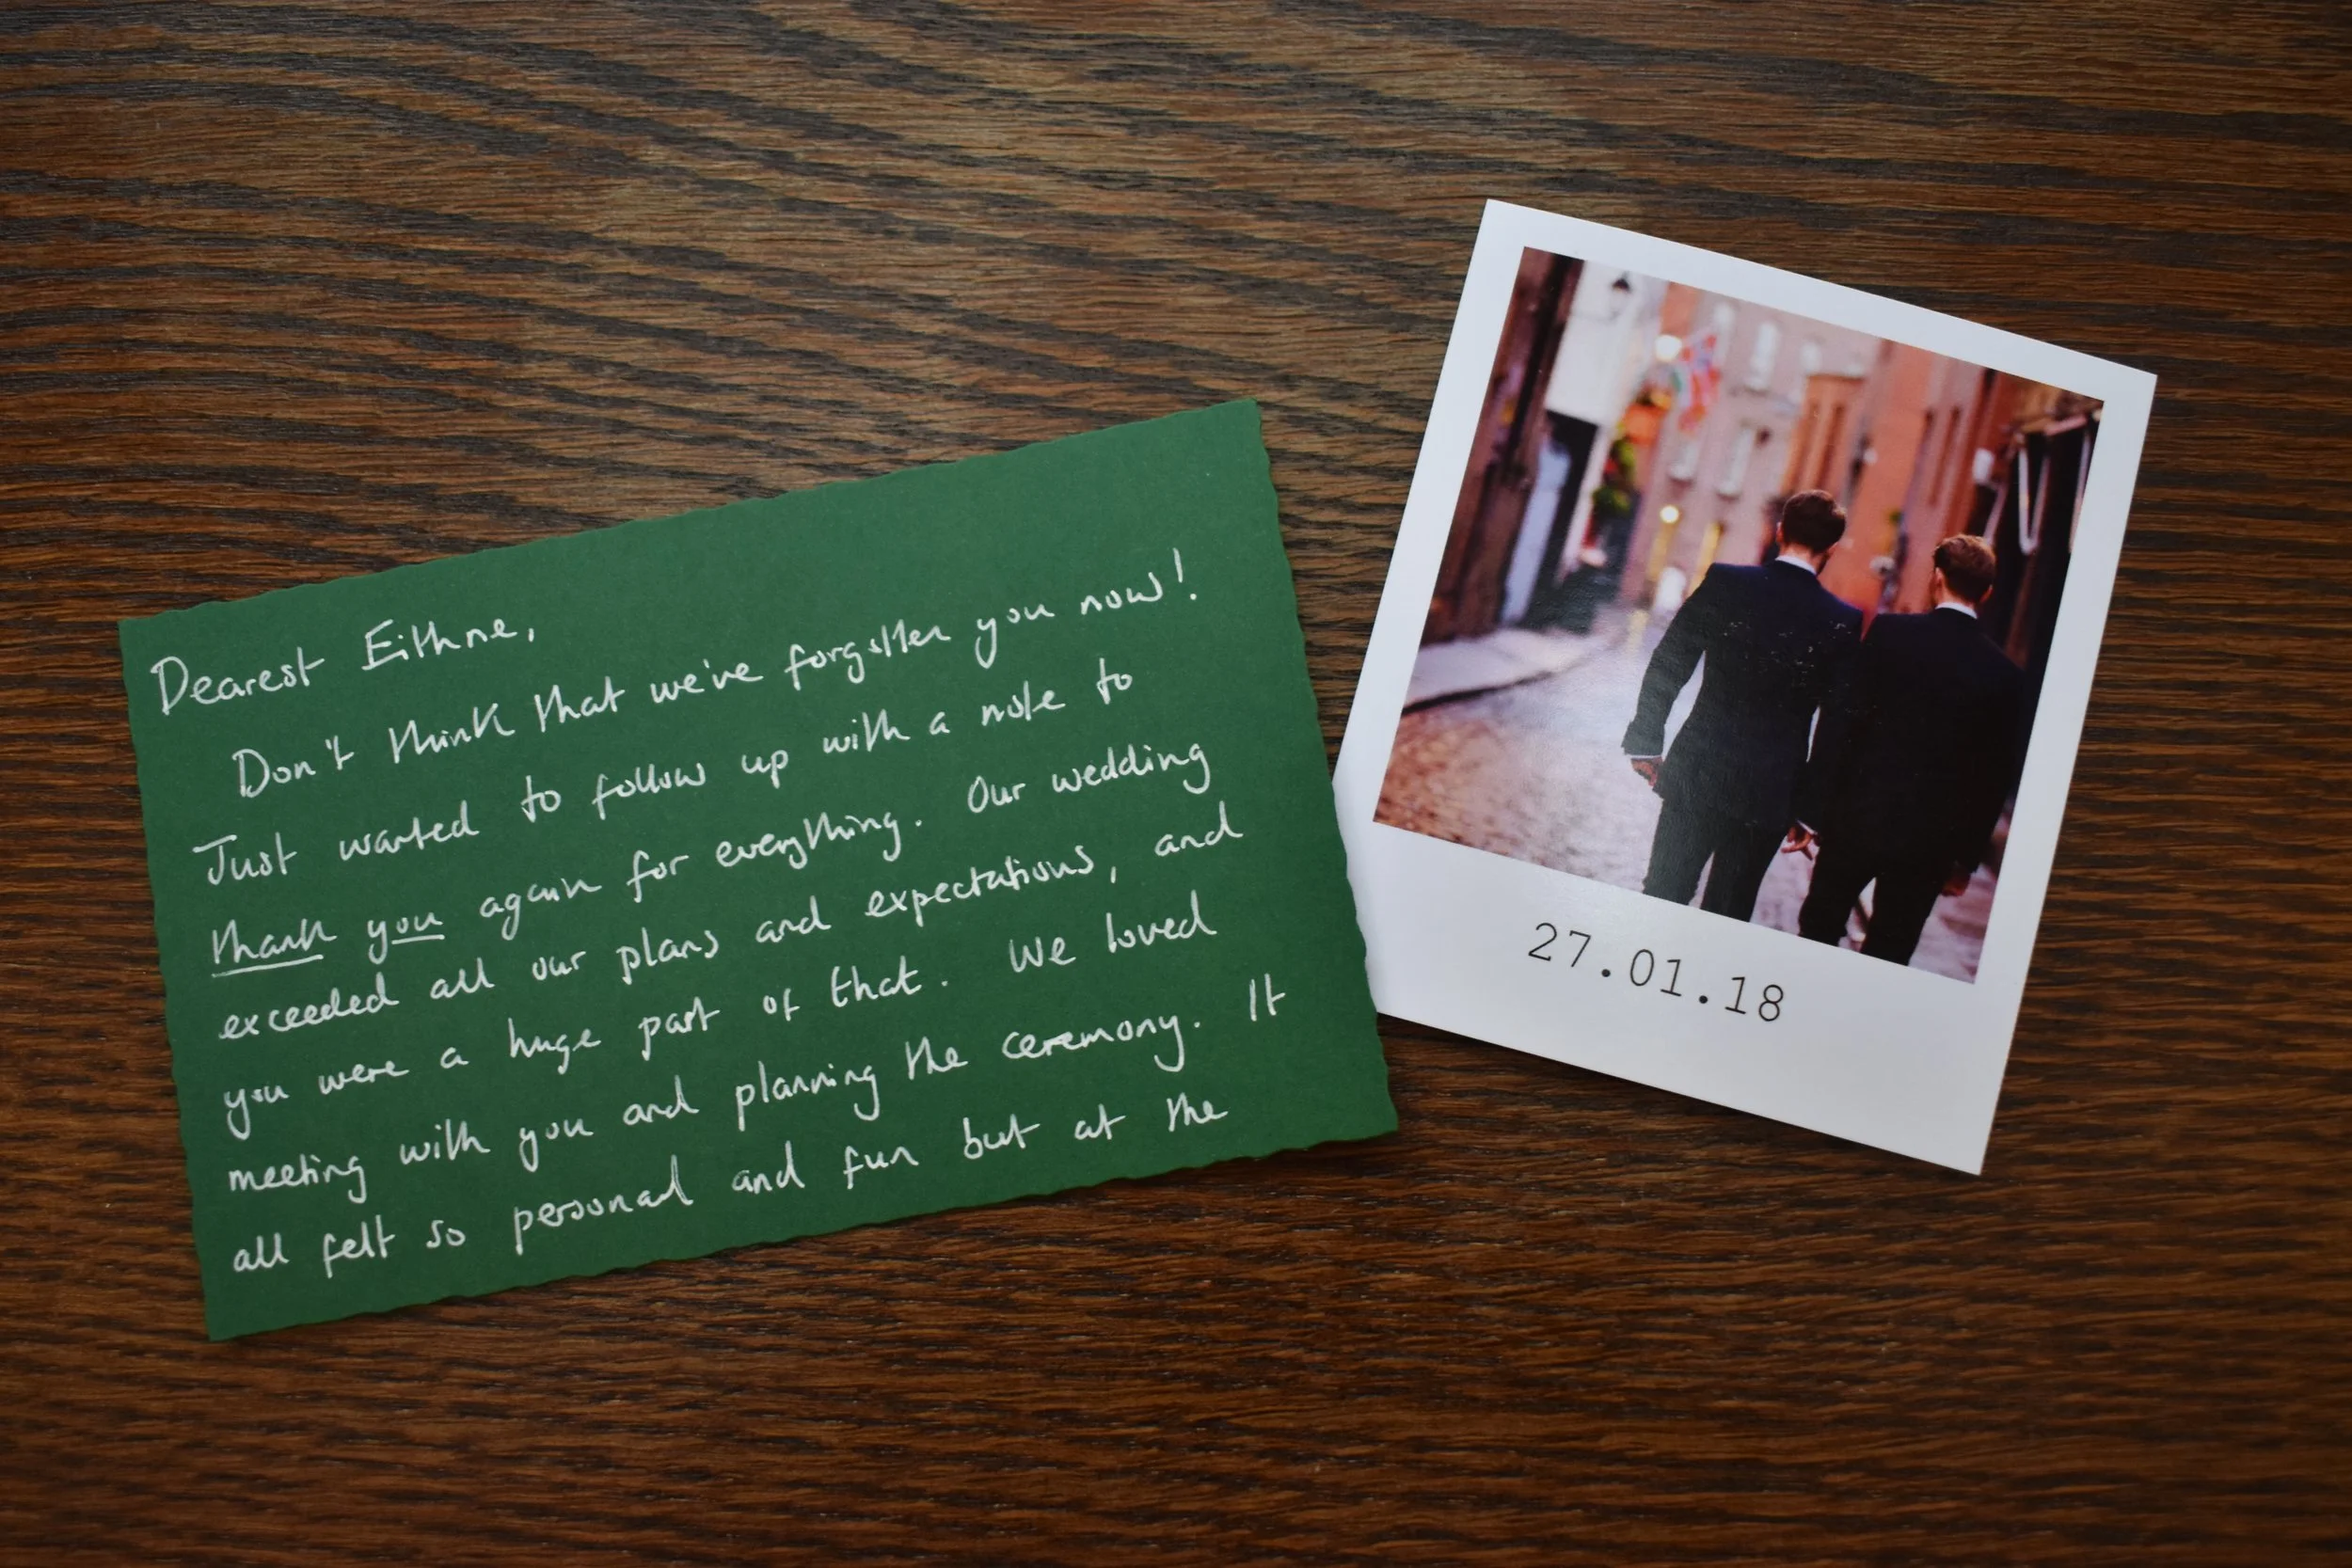 Dearest Eithne,
Don't think that we've forgotten you now!
Just wanted to follow up with a note to
thank you again for everything. Our wedding
exceeded all our plans and expectations, and
you were a huge part of that. We loved
meeting with you and planning the ceremony. It
all felt so personal and fun but at the
27.01.18